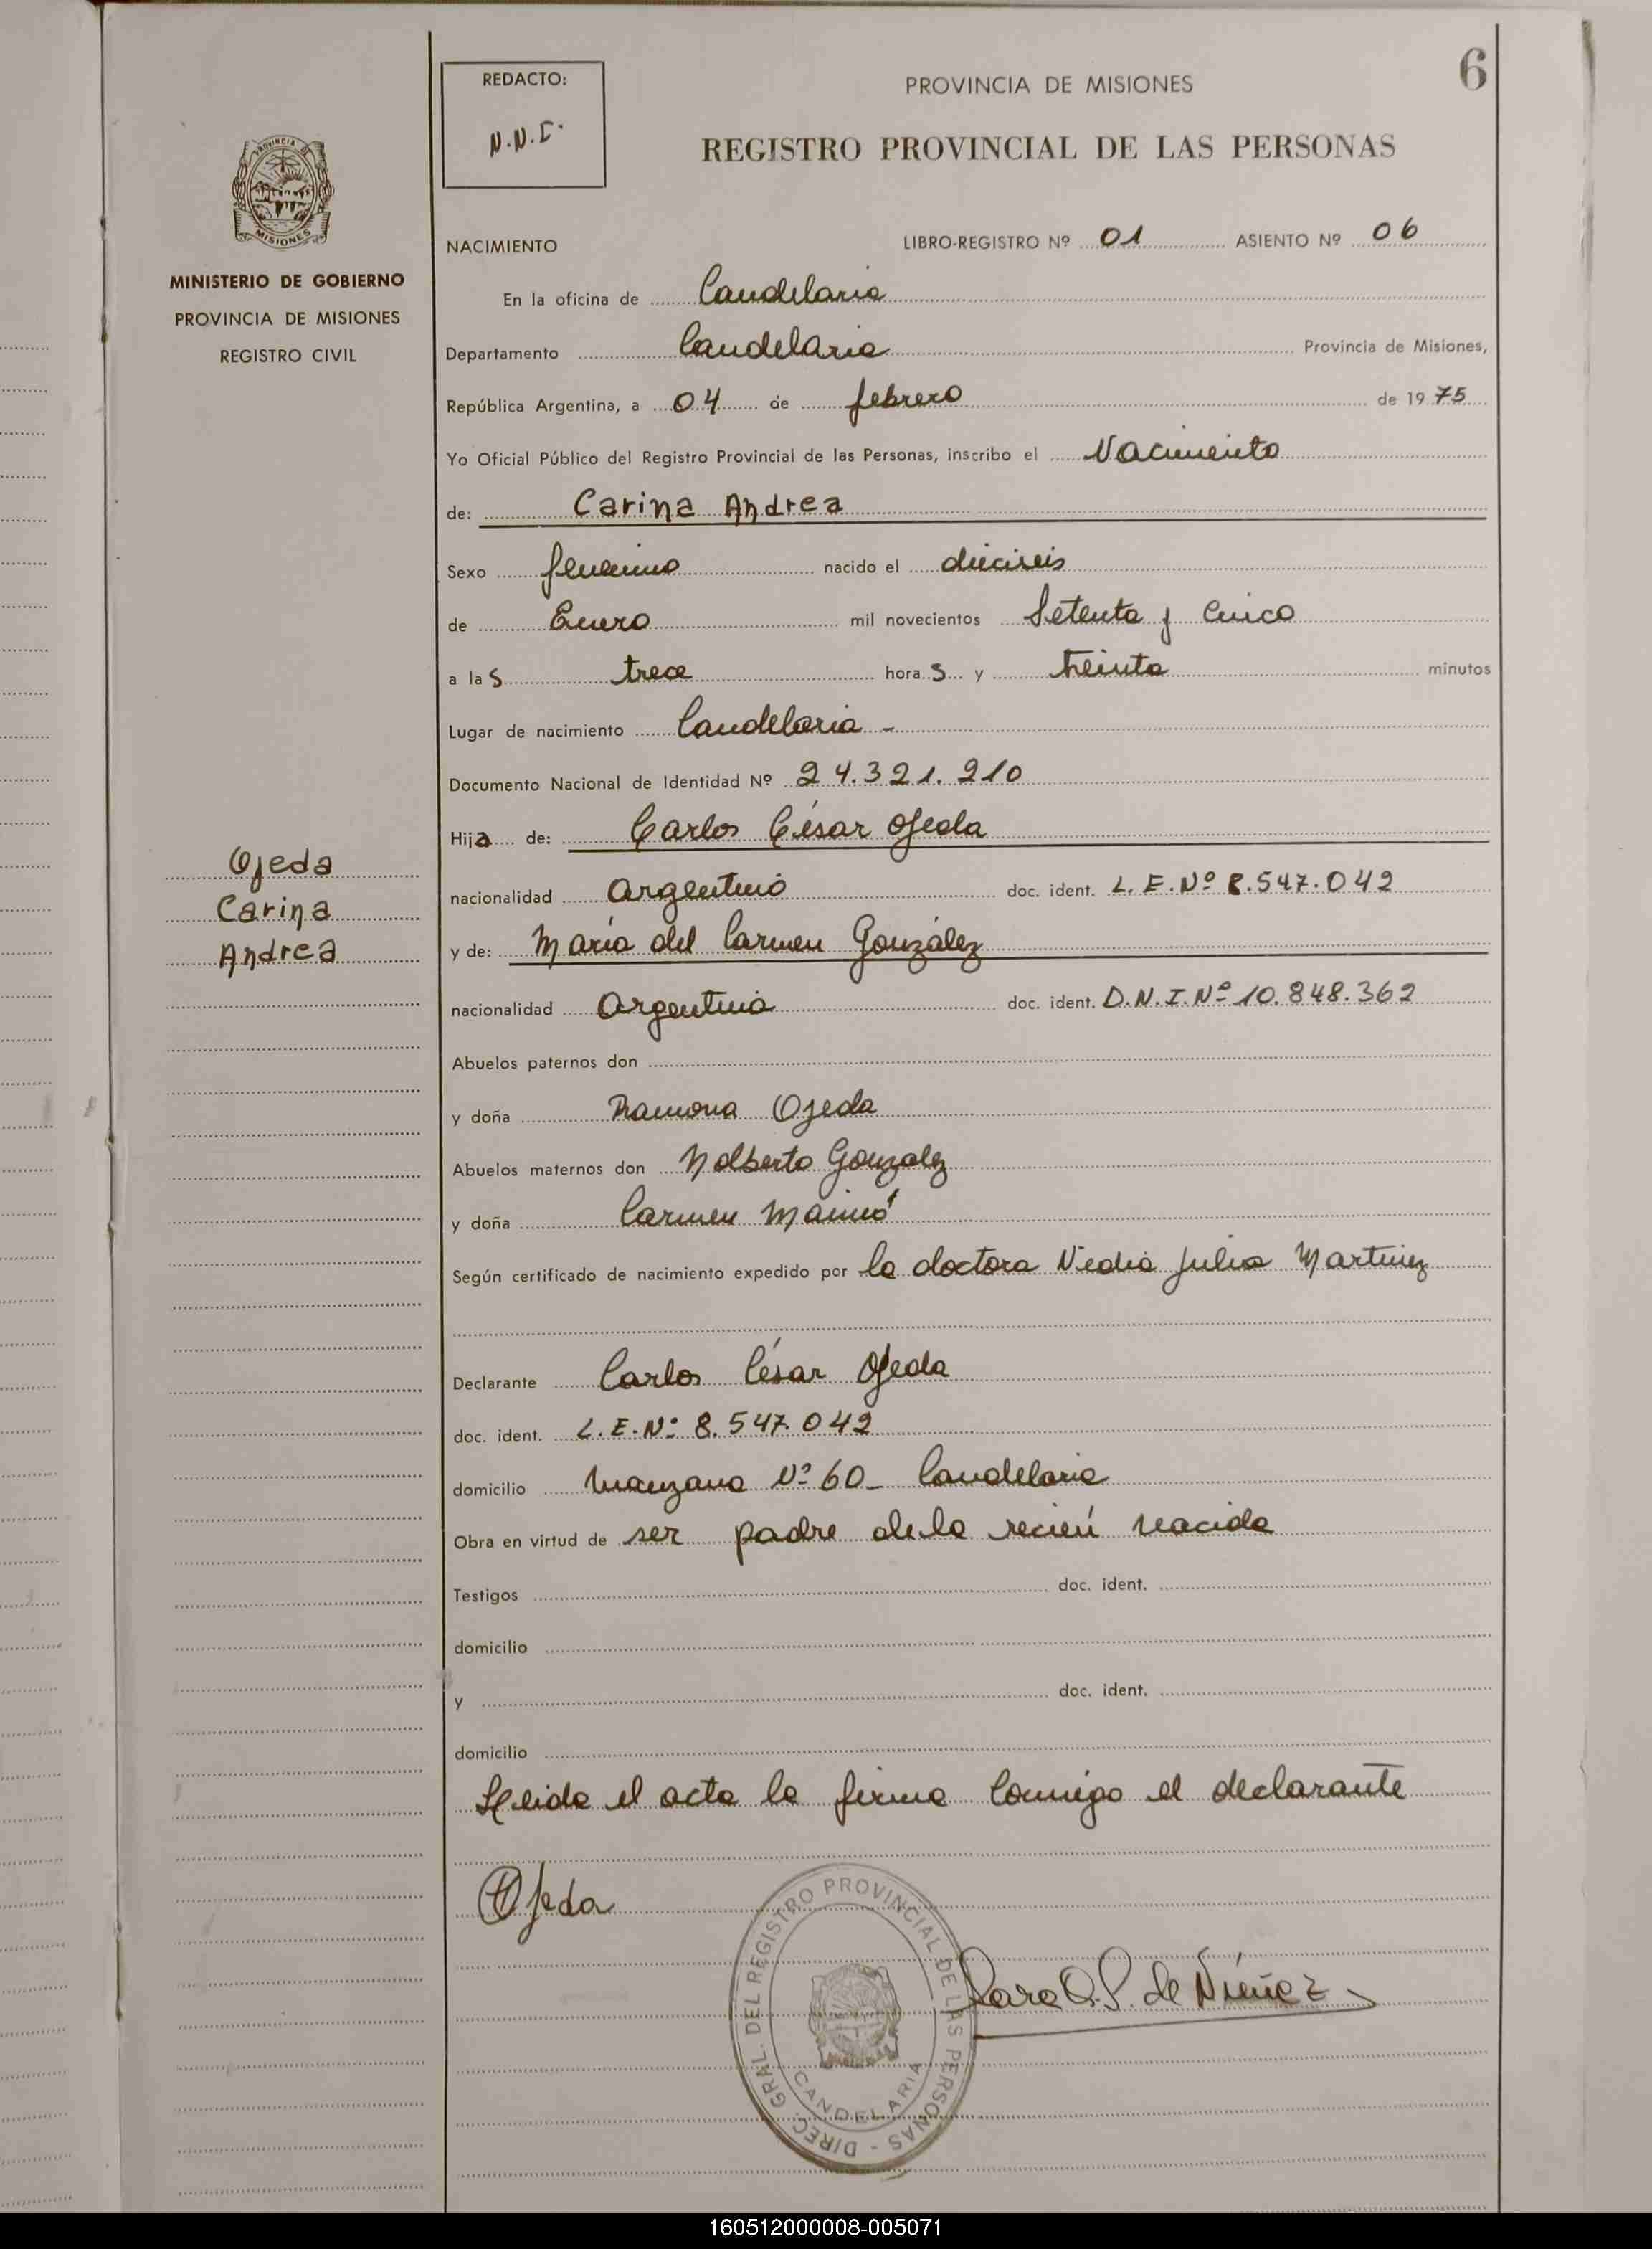 6
REDACTO:
N.N.I.
PROVINCIA DE MISIONES
REGISTRO PROVINCIAL DE LAS PERSONAS
PROVINCIA DE
MISIONES
MINISTERIO DE GOBIERNO
PROVINCIA DE MISIONES
REGISTRO CIVIL
NACIMIENTO LIBRO-REGISTRO Nº 01 ASIENTO Nº 06
En la oficina de Candelaria
Departamento Candelaria Provincia de Misiones,
República Argentina, a 04 de febrero de 1975
Yo Oficial Público del Registro Provincial de las Personas, inscribo el Nacimiento
de: Carina Andrea
Sexo femenino nacido el dieciseis
de Enero mil novecientos Setenta y Cinco
a las trece horas y treinta minutos
Lugar de nacimiento Candelaria -
Documento Nacional de Identidad Nº 24.321.210
Hija de: Carlos César Ojeda
Ojeda
Carina
Andrea
nacionalidad Argentino doc. ident. L.E.Nº 8.547.042
y de: María del Carmen González
nacionalidad Argentina doc. ident. D.N.I.Nº 10.848.362
Abuelos paternos don
y doña Ramona Ojeda
Abuelos maternos don Nolberto Gonzalez
y doña Carmen
Según certificado de nacimiento expedido por la doctora Julia Martinez
Declarante Carlos César Ojeda
doc. ident. L.E.Nº 8.547.042
domicilio Manzana Nº 60_ Candelaria
Obra en virtud de ser padre de la recién nacida
Testigos doc. ident.
domicilio
y doc. ident.
domicilio
Leida el acta la firma Conmigo el declarante
Ojeda
Sara Q.P. de Núñez
DIREC. GRAL. DEL REGISTRO PROVINCIAL DE LAS PERSONAS -
CANDELARIA
160512000008-005071